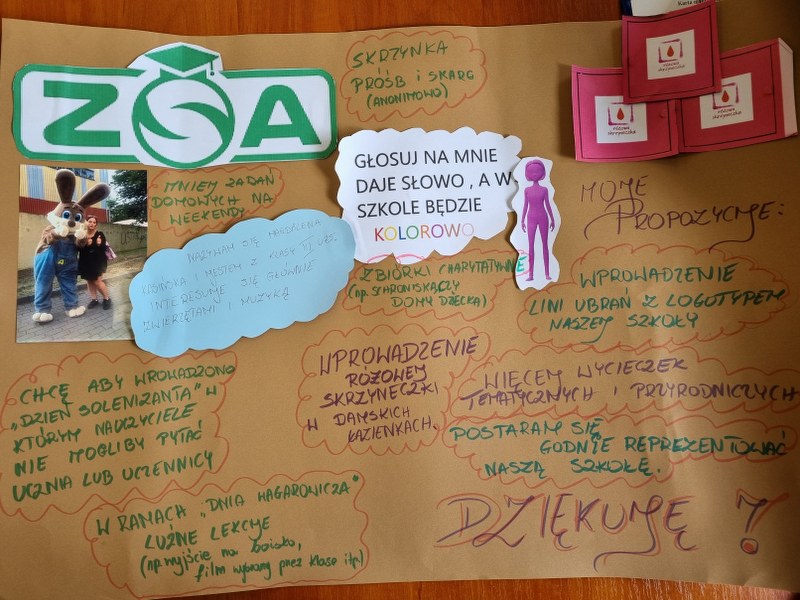 ZOA
SKRZYNKA
PRÓŚB i SKARG
(ANONIMOWO)
różowa
skrzyneczka
różowa
skrzyneczka
różowa
skrzyneczka
MNIEJ ZADAŃ
DOMOWYCH NA
WEEKENDY
GŁOSUJ NA MNIE
DAJE SŁOWO , A W
SZKOLE BĘDZIE
KOLOROWO
MOJE
PROPOZYCJE:
NAZYWAM SIĘ MAGDALENA
I JESTEM Z KLASY
INTERESUJE SIĘ GŁÓWNIE
ZWIERZĘTAMI I MUZYKĄ
ZBIÓRKI CHARYTATYWNE
(np. SCHRONISKA, CZY
DOMY DZIECKA)
WPROWADZENIE
LINI UBRAŃ Z LOGOTYPEM
NASZEJ SZKOŁY
CHCĘ ABY WROWADZONO
„DZIEŃ SOLENIZANTA" W
KTÓRYM NAUCZYCIELE
NIE MOGLIBY PYTAĆ
UCZNIA LUB UCZENNICY
WPROWADZENIE
RÓŻOWEJ
SKRZYNECZKI
W DAMSKICH
ŁAZIENKACH.
WIĘCEJ WYCIECZEK
TEMATYCZNYCH I PRZYRODNICZYCH
POSTARAM SIĘ
GODNIE REPREZENTOWAĆ
NASZĄ SZKOŁĘ.
W RAMACH „DNIA WAGAROWICZA"
LUŹNE LEKCJE
(np. wyjście na boisko,
film wybrany przez klase itp.)
DZIĘKUJĘ !